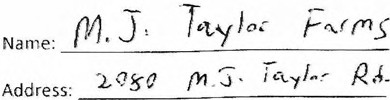 Name: M.J. Taylor Farms
Address: 2080 M.J. Taylor Rd.